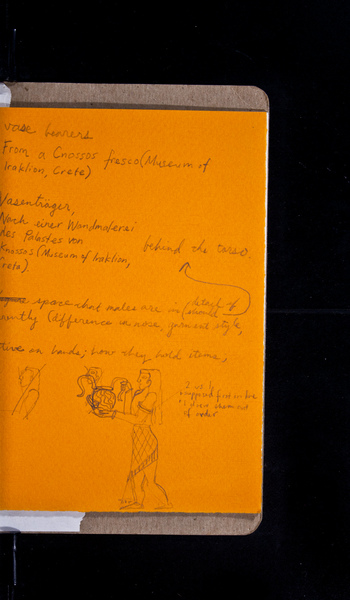 vase bearers
From a Cnossos fresco (Museum of
Iraklion, Crete)
Vasenträger,
Nach einer Wandmalerei
des Palastes von
Knossos (Museum of Iraklion,
Creta).
behind the torso.
space that males are in
detail of
(difference in nose, garment style,
on hands; how they hold items,
first in line
I drew them out
of order